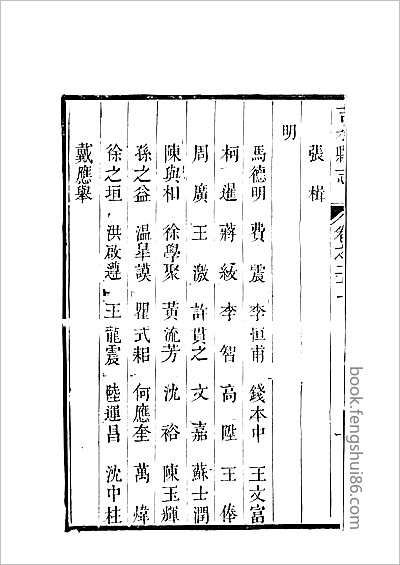 縣志
張楫
明
馬德明 費震 李恒甫 錢本中 王文富
柯暹 蔣綬 李智 高陞 王俸
周廣 王激 許貫之 文嘉 蘇士潤
陳與和 徐學聚 黃流芳 沈裕 陳玉輝
孫之益 温臯謨 瞿式耜 何應奎 萬煒
徐之垣 洪啟遵 王龍震 陸運昌 沈中柱
戴應舉
book.fengshui86.com